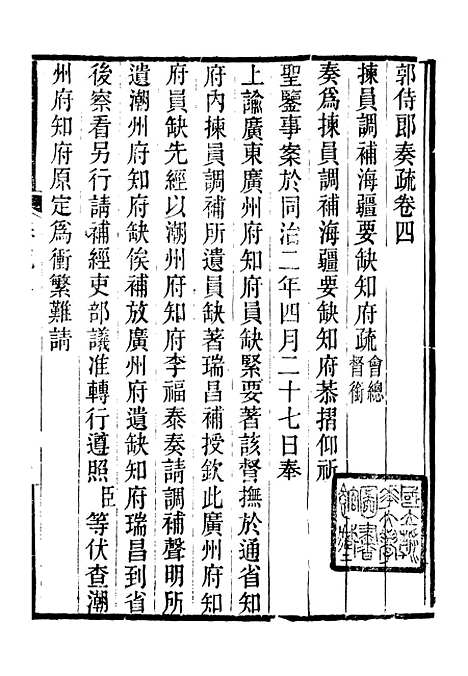 郭侍郎奏疏卷四
揀員調補海疆要缺知府疏 會總督銜
奏爲揀員調補海疆要缺知府恭摺仰祈
聖鑒事案於同治二年四月二十七日奉
上諭廣東廣州府知府員缺緊要著該督撫於通省知
府內揀員調補所遺員缺著瑞昌補授欽此廣州府知
府員缺先經以潮州府知府李福泰奏請調補聲明所
遺潮州府知府缺俟補放廣州府遺缺知府瑞昌到省
後察看另行請補經吏部議准轉行遵照臣等伏查潮
州府知府原定爲衝繁難請